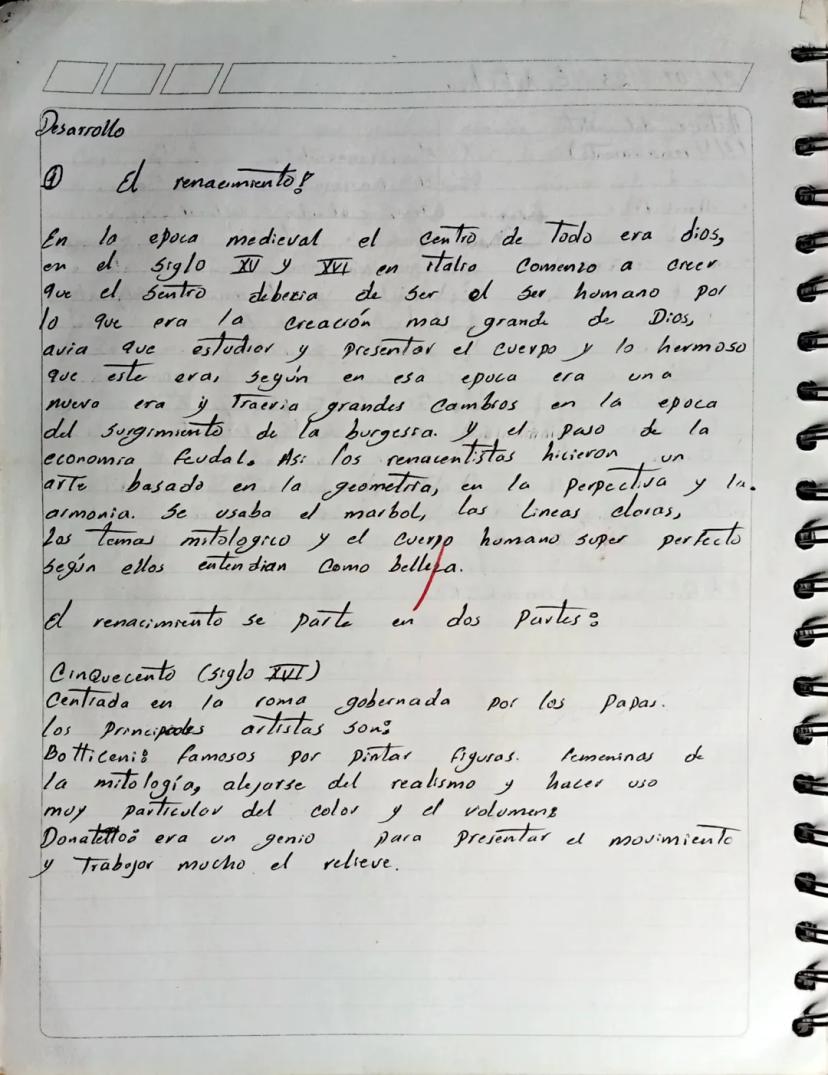 Desarrollo
① El renacimiento:
En la epoca medieval el centro de Todo era dios,
en el siglo XV y XVI en italia comenzo a creer
que el sentro deberia de ser el ser humano por
lo que era la creación mas grande de Dios,
avia que estudiar y presentar el cuerpo y lo hermoso
que este era, según en esa epoca era una
nueva era y Traeria grandes cambios en la epoca
del surgimiento de la burgessa. y el paso de la
economia feudal. Asi los renacentistas hicieron un
arte basado en la geometria, en la perpectiva y la.
armonia. se usaba el marbol, las lineas claras,
Los temas mitologico y el cuerpo humano super perfecto
según ellos entendian como belleza.
El renacimiento se parte en dos partes:
Cinquecento (siglo XVI)
Centrada en la roma gobernada por los papas.
los principales artistas son:
Botticeni: famosos por pintar figuras. femeninas de
la mitología, alejarse del realismo y hacer uso
muy particular del color y el volumen:
Donatello: era un genio para presentar el movimiento
y Trabajar mucho el relieve.